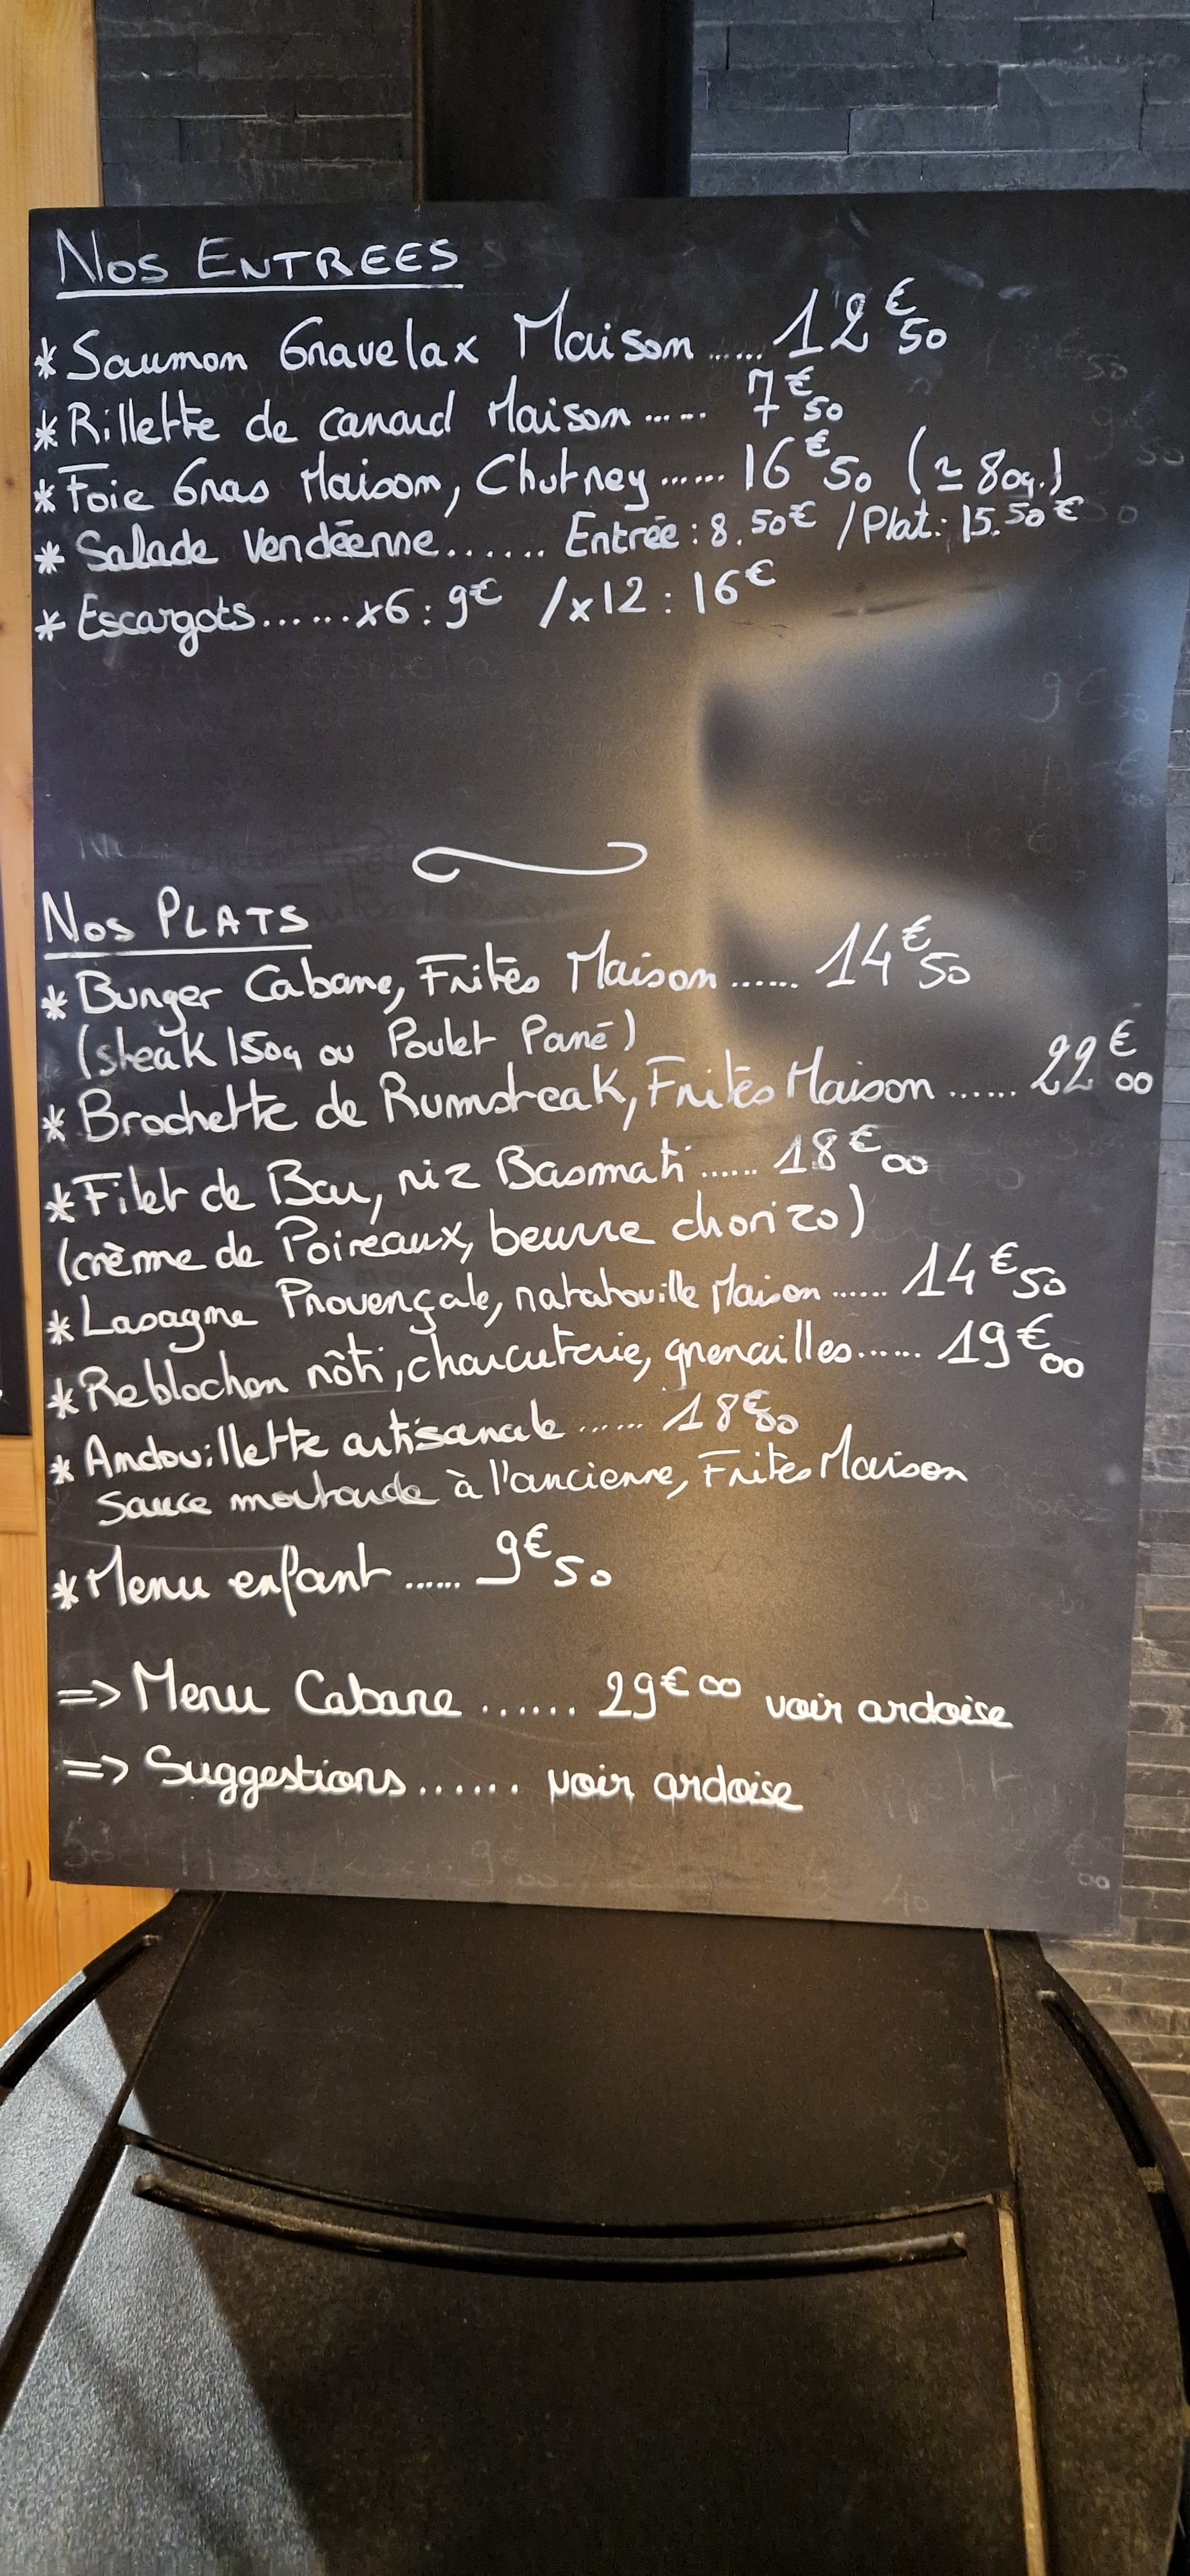 Nos ENTREES
* Saumon Gravelax Maison ...... 12€50
* Rillette de canard Maison ...... 7€50
* Foie Gras Maison, Chutney ...... 16€50 (≃ 80g.)
* Salade Vendéenne....... Entrée : 8.50€ / Plat : 15.50€
* Escargots.......x6 : 9€ / x12 : 16€
Nos PLATS
* Burger Cabane, Frites Maison ...... 14€50
(steak 150g ou Poulet Pané)
* Brochette de Rumsteak, Frites Maison ...... 22€00
* Filet de Bar, riz Basmati ...... 18€00
(crème de Poireaux, beurre chorizo)
* Lasagne Provençale, ratatouille Maison ...... 14€50
* Reblochon rôti, charcuterie, grenailles...... 19€00
* Andouillette artisanale ...... 18€50
Sauce moutarde à l'ancienne, Frites Maison
* Menu enfant ...... 9€50
=> Menu Cabane ....... 29€00 voir ardoise
=> Suggestions ...... voir ardoise